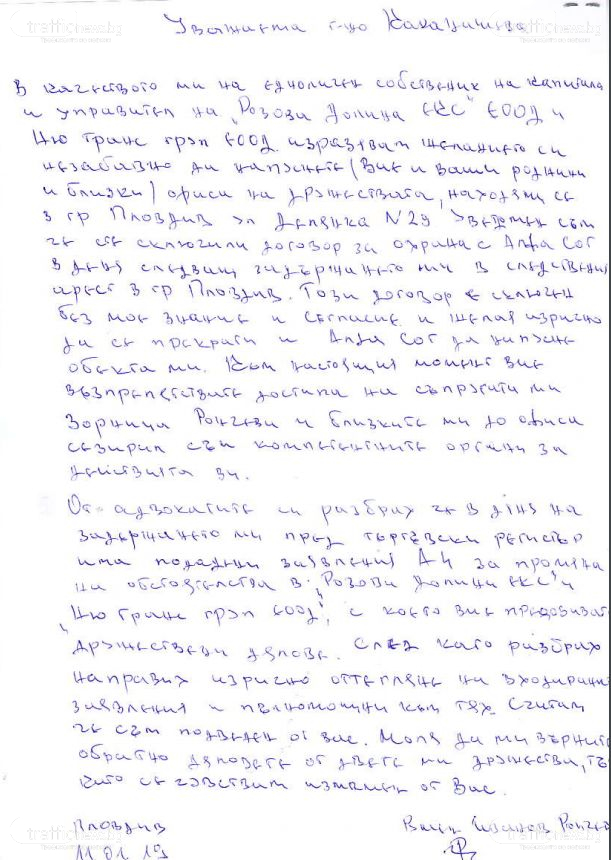 trafficnews.bg
Уважаема г-цо
В качеството ми на едноличен собственик на капитала
и управител на "Розова Долина ЕКС" ЕООД и
Ню Транс груп ЕООД изразявам желанието си
незабавно да напуснете (Вие и Ваши роднини
и близки) офиса на дружествата, находящ се
в гр Пловдив ул Делянка N°29 Уведомен съм
че сте сключили договор за охрана с Алфа Сот
в деня следващ задържането ми в следствения
арест в гр Пловдив. Този договор е сключен
без мое знание и съгласие и желая изрично
да се прекрати и Алфа Сот да напусне
обекта ми. Към настоящия момент вие
възпрепятствате достъпа на съпругата ми
Зорница и близките ми до офиса
сезирал съм компетентните органи за
действията ви.
От адвокатите си разбрах че в деня на
задържането ми пред търговски регистър
има подадени заявления А4 за промяна
на обстоятелства в "Розова Долина ЕКС" и
"Ню Транс груп ЕООД", с което вие придобивате
дружествени дялове. След като разбрах
направих изрично оттегляне на входирани
заявления и пълномощни към тях. Считам
че съм подведен от вас. Моля да ми върнете
обратно дяловете от двете ми дружества, тъй
като се чувствам измамен от Вас.
Пловдив
11.01.19
Иванов
trafficnews.bg